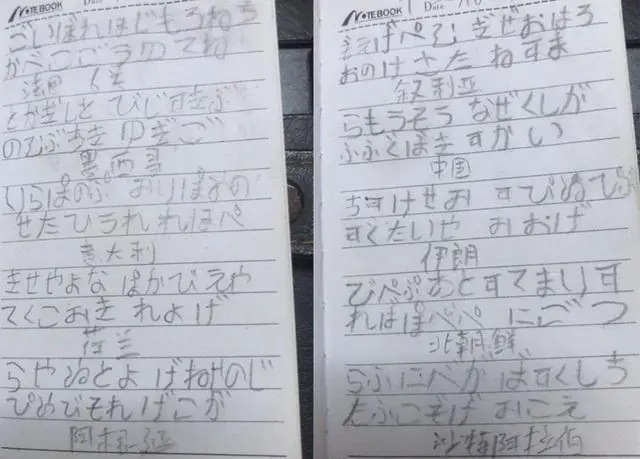 NOTEBOOK
Date
ごいぼれほじもろねち
かべこごうのてね
とかぎしと びじすきぶ
のるぶちき ゆぎご
墨西哥
くらぽのぷ おりぱぬの
せたひうれ れほぺ
意大利
きせやよな ぽかびえや
てくこおき れよげ
荷兰
らやぬとよ げねやのじ
ぴめびそれ げこが
NOTEBOOK
Date
ぎぜおはろ
おのけさた ねすま
叙利亚
らもうそう なぜくしが
ふふくばき すかい
中国
ちすけせお すぴぬでぶ
すくたいや おおげ
伊朗
びぺぷあとすてまります
ればぽべぺ にごつ
北朝鲜
らふにべが ばすくしち
おこえ
沙特阿拉伯